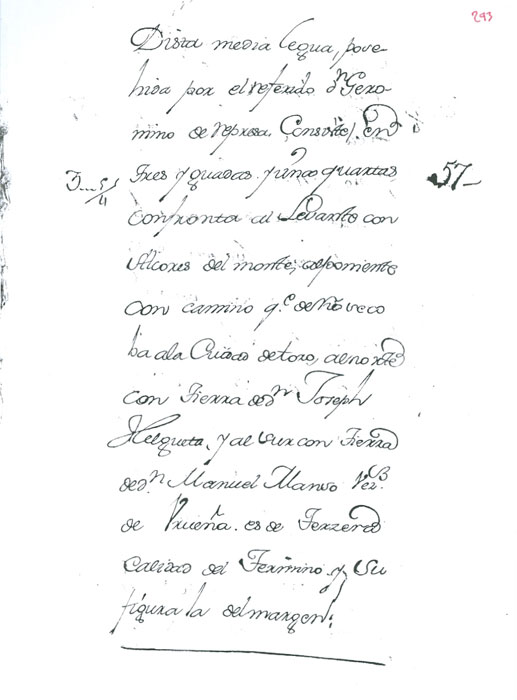 293
Dista media legua, pose-
hida por el referido Dn. Gero-
mino de represa, Consiste, en
3 5/4 Tres Yguadas. y unas quartas 57
confronta al Levante con
Alcores del monte, al poniente
con camino q.e de
ba ala Ciudad de toro, al norte
con Tierra de dn Joseph
Helgueta, y al Sur con Tierra
de d.n Manuel Manso Vez.o
de Vrueña. es de Terzera
Calidad del Termino. y Su
figura la del margen.